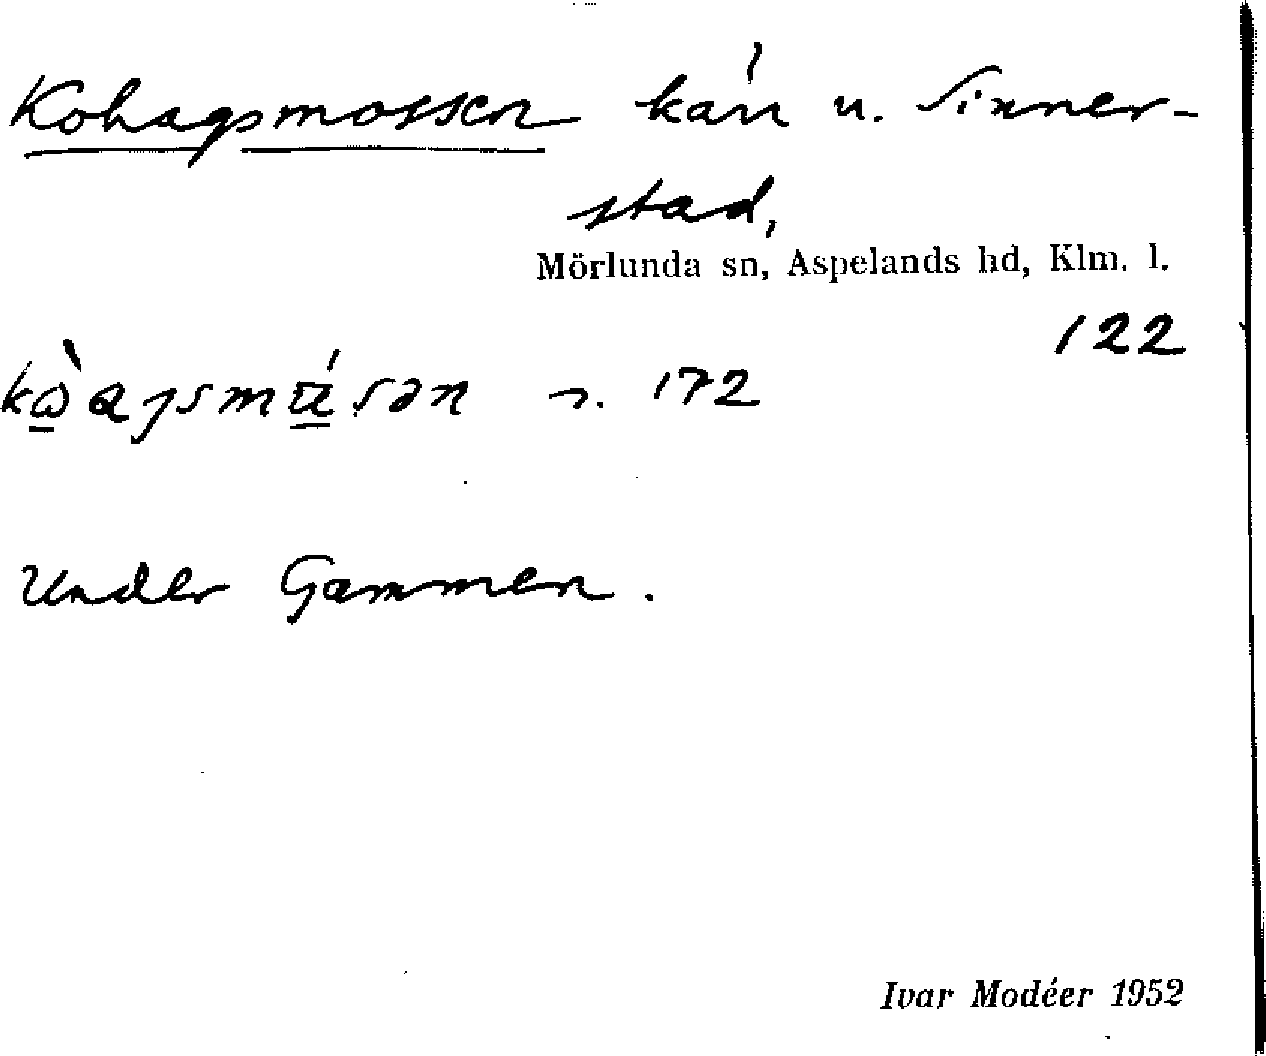 Kohagsmossen kärr u. Sinner-
stad,
Mörlunda sn, Aspelands hd, Klm. l.
122
s. 172
Under Gammen.
Ivar Modéer 1952